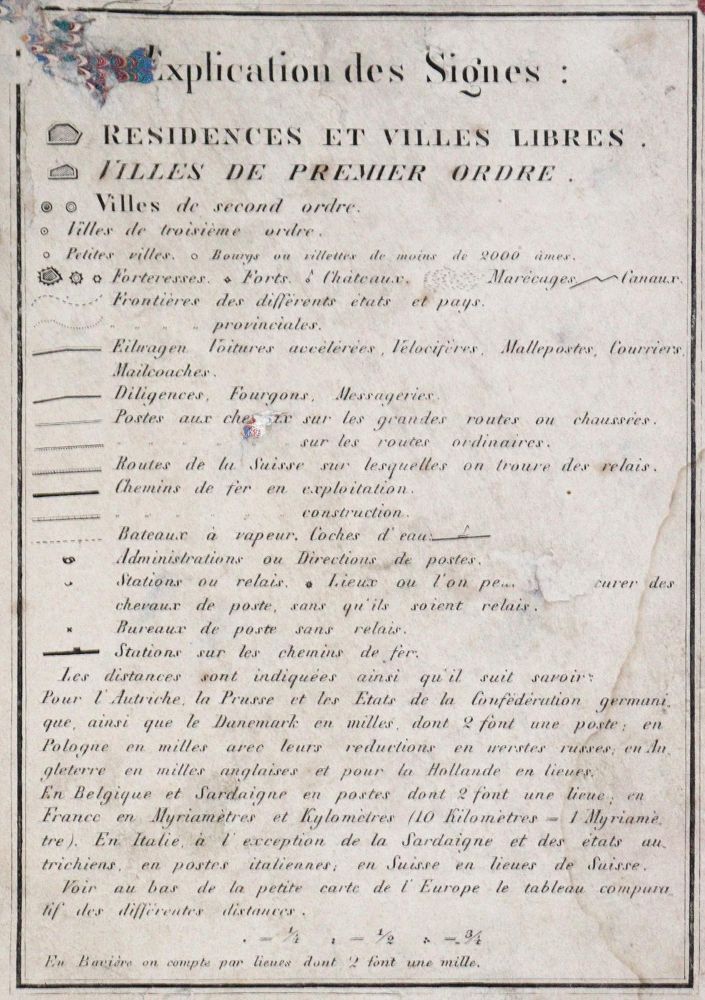 Explication des Signes :
RESIDENCES ET VILLES LIBRES .
VILLES DE PREMIER ORDRE .
Villes de second ordre.
Villes de troisième ordre .
Petites villes. Bourgs ou villettes de moins de 2000 âmes.
Forteresses. Forts. Châteaux. Marécages Canaux.
Frontières des différents états et pays.
" " " " provinciales.
Eilwagen Voitures accélérées, Vélocifères, Mallepostes, Courriers,
Mailcoaches.
Diligences, Fourgons, Messageries.
Postes aux chevaux sur les grandes routes ou chaussées.
" " " " sur les routes ordinaires.
Routes de la Suisse sur lesquelles on trouve des relais.
Chemins de fer en exploitation.
" " " " construction.
Bateaux à vapeur. Coches d'eau.
Administrations ou Directions de postes.
Stations ou relais. Lieux ou l'on curer des
chevaux de poste, sans qu'ils soient relais.
Bureaux de poste sans relais.
Stations sur les chemins de fer.
Les distances sont indiquées ainsi qu'il suit savoir:
Pour l'Autriche, la Prusse et les Etats de la Confédération germani-
que, ainsi que le Danemark en milles, dont 2 font une poste; en
Pologne en milles avec leurs reductions en werstes russes; en An-
gleterre en milles anglaises et pour la Hollande en lieues.
En Belgique et Sardaigne en postes dont 2 font une lieue; en
France en Myriamètres et Kylomètres (10 Kilomètres = 1 Myriamè-
tre). En Italie, à l'exception de la Sardaigne et des états au-
trichiens, en postes italiennes; en Suisse en lieues de Suisse.
Voir au bas de la petite carte de l'Europe le tableau compara-
tif des différentes distances .
. = 1/4 : = 1/2 ⁖ = 3/4
En Bavière on compte par lieues dont 2 font une mille.